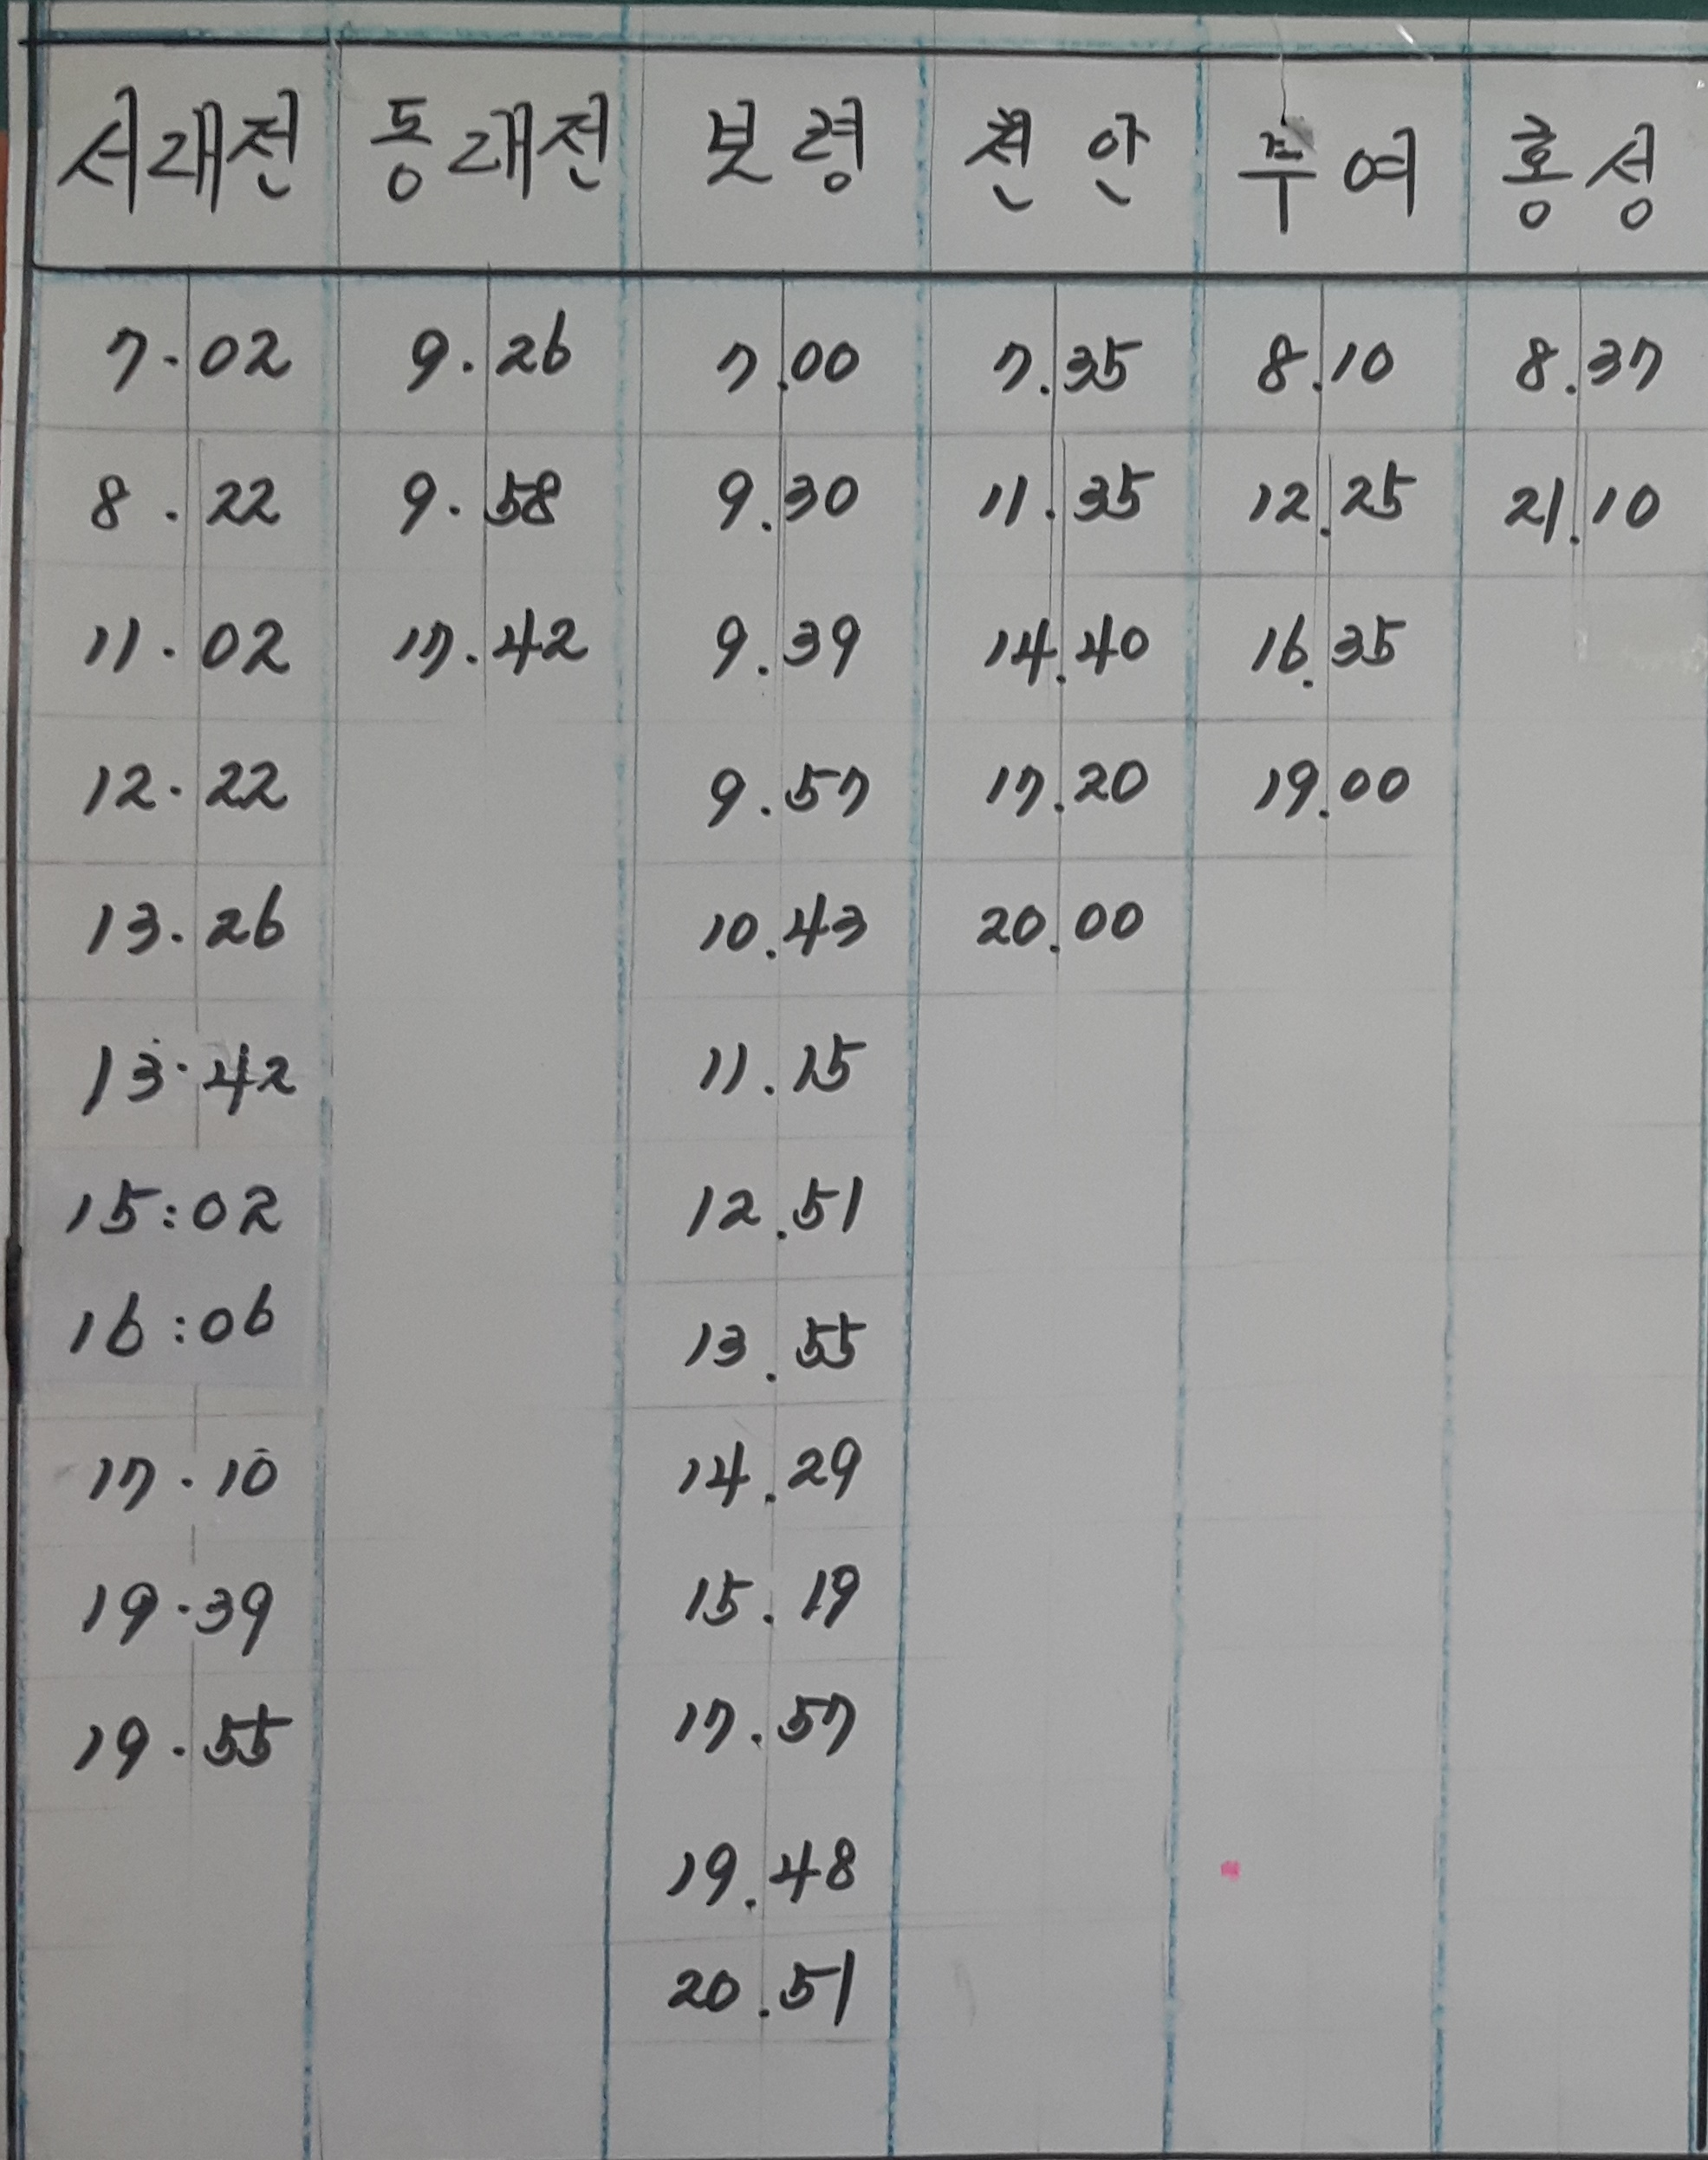 서대전 동대전 보령 천안 부여 홍성
7.02 9.26 7.00 7.35 8.10 8.37
8.22 9.58 9.30 11.35 12.25 21.10
11.02 17.42 9.39 14.40 16.35
12.22 9.57 17.20 19.00
13.26 10.43 20.00
13.42 11.15
15:02 12.51
16:06 13.55
17.10 14.29
19.39 15.19
19.55 17.57
19.48
20.51